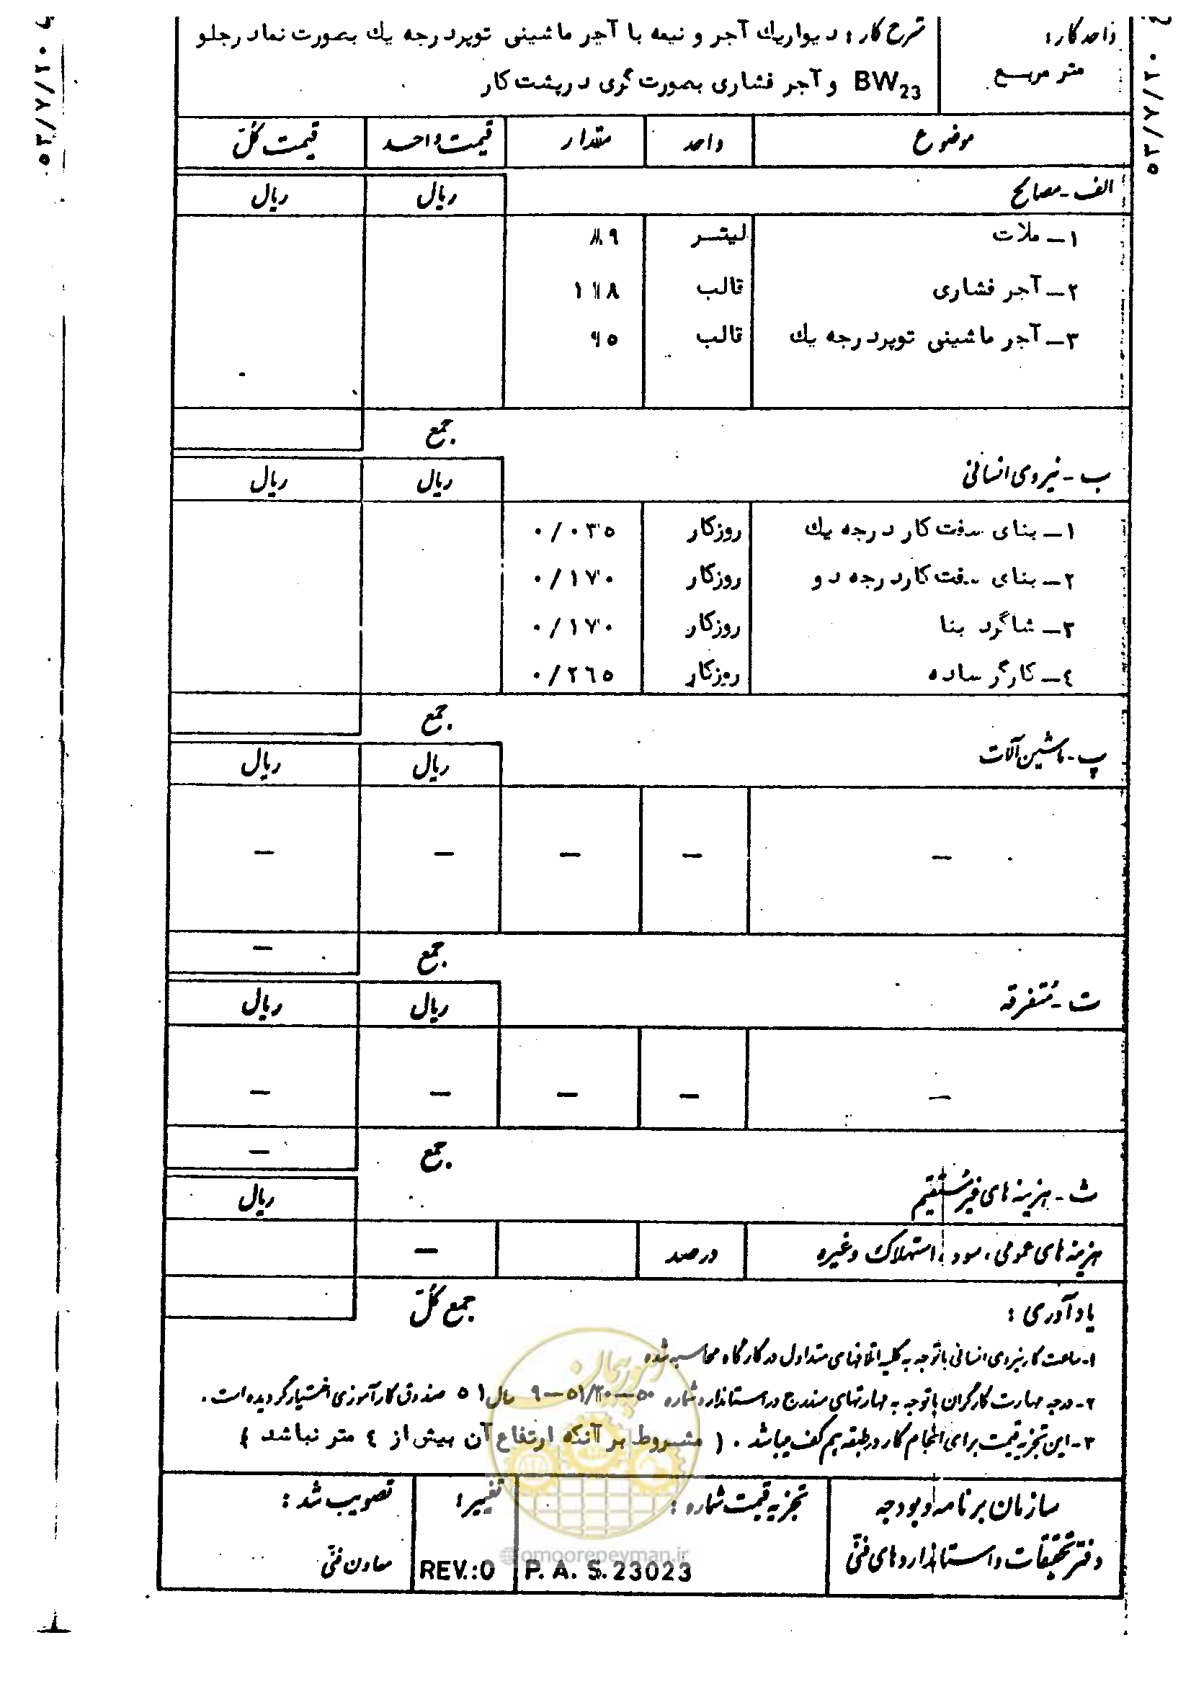 واحد کار :
متر مربع
شرح کار : دیواریك آجر و نیمه با آجر ماشینی توپردرجه یك بصورت نما درجلو
BW23 و آجر فشاری بصورت گری درپشت کار
موضوع واحد مقدار قیمت واحد قیمت کلّ
الف - مصالح ریال ریال
۱ – ملات لیتر ۸۹
۲ – آجر فشاری قالب ۱۱۸
۳ – آجر ماشینی توپردرجه یك قالب ۹۵
جمع
ب - نیروی انسانی ریال ریال
۱ – بنای سفت کار درجه یك روزکار ۰/۰۳۵
۲ – بنای سفت کاردرجه دو روزکار ۰/۱۷۰
۳ – شاگرد بنا روزکار ۰/۱۷۰
٤ – کارگر ساده روزکار ۰/۲٦۵
جمع
پ - ماشین آلات ریال ریال
– – – – –
جمع –
ت - متفرقه ریال ریال
– – – – –
جمع –
ث - هزینه های غیر مستقیم ریال
هزینه های عمومی ، سود ، استهلاک وغیره درصد –
یادآوری : جمع کلّ
۱- ساعت کار نیروی انسانی باتوجه به کلیه اتلافهای متداول در کارگاه محاسبه شده
۲- درجه مهارت کارگران باتوجه به مهارتهای مندرج در استاندارد شماره ۵۰–۵۱/۲۰–۹ سال ۵۱ صندوق کارآموزی اختیار گردیده است .
۳- این تجزیه قیمت برای انجام کار درطبقه هم کف میباشد . ( مشروط بر آنکه ارتفاع آن بیش از ٤ متر نباشد )
سازمان برنامه و بودجه
دفتر تحقیقات و استانداردهای فنّی
تجزیه قیمت شماره :
P. A. S. 23023
تغییر :
REV.:0
تصویب شد :
معاون فنّی
امور پیمان
@omoorepeyman.ir